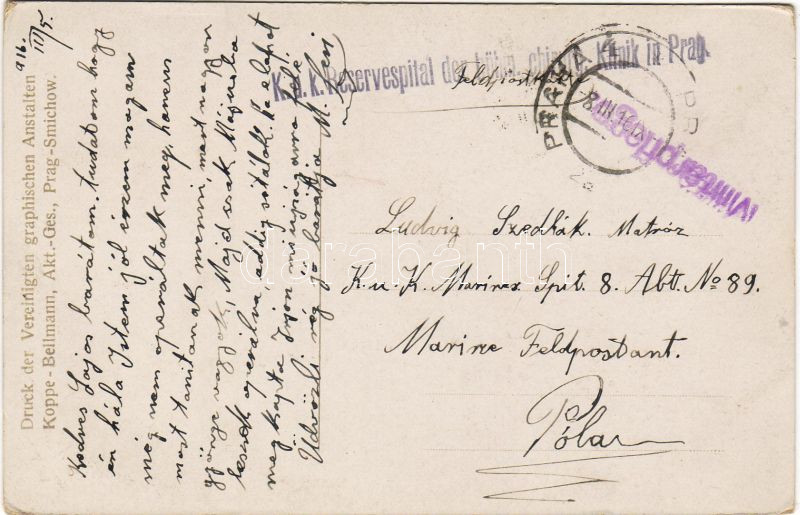 Druck der Vereinigten graphischen Anstalten
Koppe-Bellmann, Akt.-Ges., Prag-Smichow.
916. III/5.
Kedves Lajos barátom. tudatom hogy
én hála Istennek jól érzem magam
még nem operáltak meg, hanem
most tanitanak menni, mert nagyon
gyönge vagyok, Majd csak Májusba
leszek operálva addig sétálok. Ha elapot
megkapta Irjon mi ujság arra felé!
Üdvözli rég jó barátja M.
K.u.K. Reservespital der chirurg. Klinik in Prag.
Feldpostkarte
PRAHA
8.III.16
Militärpflege
Ludvig Szedlják. Matróz
K.u.K. Marine Spit. 8. Abt. No 89.
Marine Feldpostamt.
Póla
darabanth